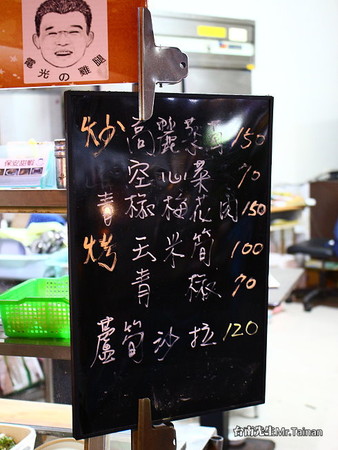 富光の雞誕
炒 高麗菜專 150
空心菜 70
青椒梅花肉 150
烤 玉米筍 100
青椒 70
蘆筍沙拉 120
台南先生Mr.Tainan